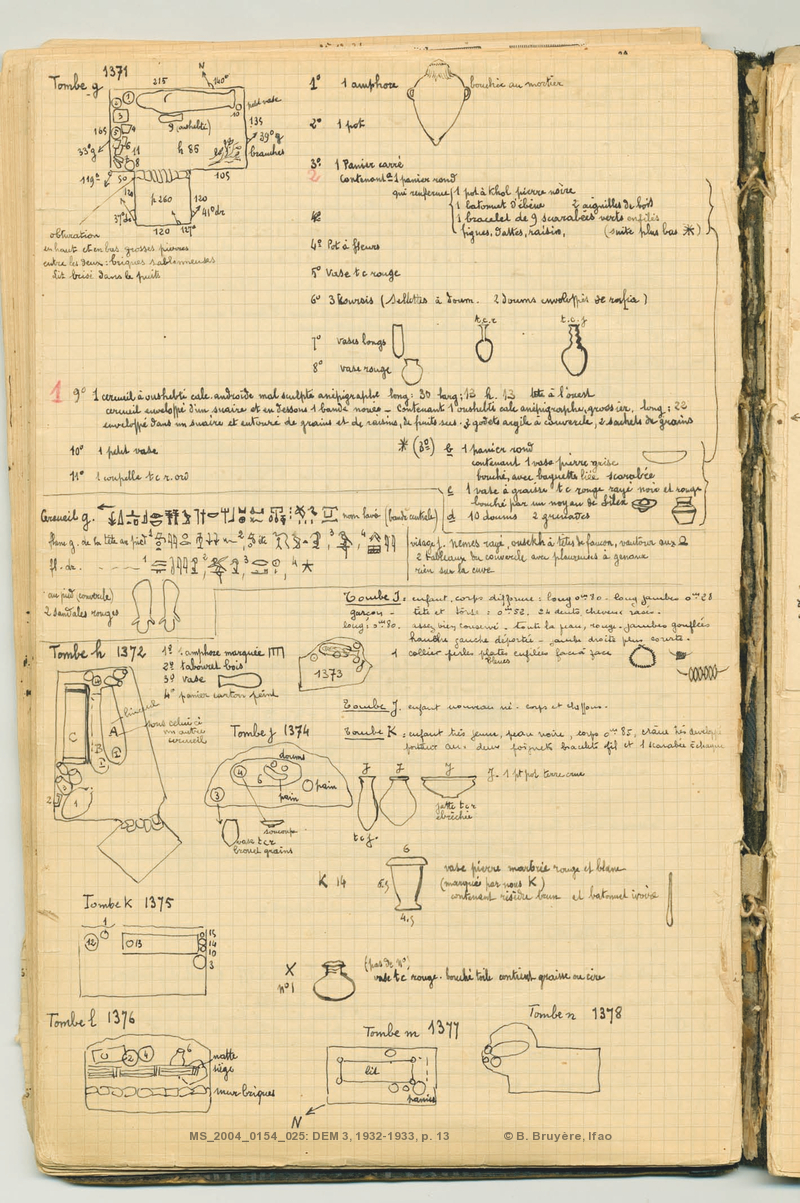 Tombe g 1371
215
N
140°
petit vase
10
9 (oushebti)
135
39°g
165
h 85
branches
33°g
119°
50
105
p 260
120
120
41°dr
37°dr
120
127°
obturation
en haut et en bas, grosses pierres
entre les deux : briques sablonneuses
lit brisé dans le puits
1° 1 amphore
bouchée au mortier
2° 1 pot
3° 1 Panier carré
2
contenant 1 panier rond
qui renferme
1 pot à khol pierre noire
1 batonnet d'ébène 2 aiguilles de bois
1 bracelet de 9 scarabées verts enfilés
figues, dattes, raisin, (suite plus bas *)
4° Pot à fleurs
5° Vase t c rouge
6° 3 Koursis (Sellettes à doum. 2 doums enveloppés de rafia)
7° vases longs
t.c.r
t.c.j
8° vase rouge
1 9° 1 cercueil à oushebti calc. androïde mal sculpté anépigraphe long: 30 larg: 13 h. 13 tête à l'ouest
cercueil enveloppé d'un suaire et en dessous 1 bande nouée - Contenant 1 oushebti calc anépigraphe, grossier, long : 22
enveloppé dans un suaire et entouré de grains et de raisins, de fruits secs. 3 godets argile à couvercle, 2 sachets de grains
10° 1 petit vase
11° 1 coupelle t c r. ord
* (3°)
b 1 panier rond
contenant 1 vase pierre grise
bouché, avec baguette liée scarabée
c 1 vase à graisse t c rouge rayé noir et rouge
bouché par un noyau de silex
d 10 doums 2 grenades
Cercueil g.
non lavé (bande centrale)
flanc g. de la tête au pied
fl. dr.
visage j. nemes rayé, ousekh à têtes de faucon, vautour aux
2 tableaux du couvercle avec pleureuses à genoux
rien sur la cuve
au pied (couvercle)
2 sandales rouges
Tombe I : enfant, corps difforme : long 0m80 - long jambes 0m28
garçon - tête et torse : 0m52. 24 dents, cheveux rasés.
long: 0m80. assez bien conservé - toute la peau, rouge - jambes gonflées
hanche gauche déportée - jambe droite plus courte.
1 collier perles plates enfilées face à face
bleues
1373
Tombe h 1372
1° 1 amphore marquée
2° tabouret bois
3° vase
4° panier carton peint
linceul
sous celui-ci
un autre
cercueil
A
B
C
Tombe J. enfant nouveau né - corps et chiffons.
Tombe K : enfant très jeune, peau noire, corps 0m85, crâne très développé
portant aux deux poignets bracelets fil et 1 scarabée
Tombe j 1374
doums
pain
pain
soucoupe
vase t c r
brouet grains
J
J
J
t c j.
jatte t c r
ébréchée
J. 1 pt pot terre crue
K 14
6
8,5
4,5
vase pierre marbrée rouge et blanc
(marquée par nous K)
contenant résidu brun et batonnet ivoire
Tombe K 1375
1
12
13
15
14
10
3
X
n°1
(pas de n°)
vase t c rouge - bouché toile contient graisse ou cire
Tombe l 1376
natte
siège
mur briques
Tombe m 1377
lit
panier
N
Tombe n 1378
MS_2004_0154_025: DEM 3, 1932-1933, p. 13 © B. Bruyère, Ifao